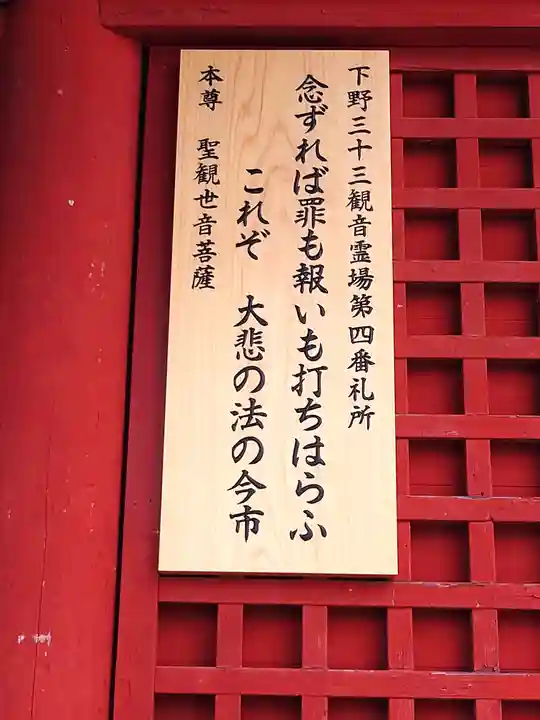 下野三十三観音霊場第四番礼所
念ずれば罪も報いも打ちはらふ
これぞ 大悲の法の今市
本尊 聖観世音菩薩